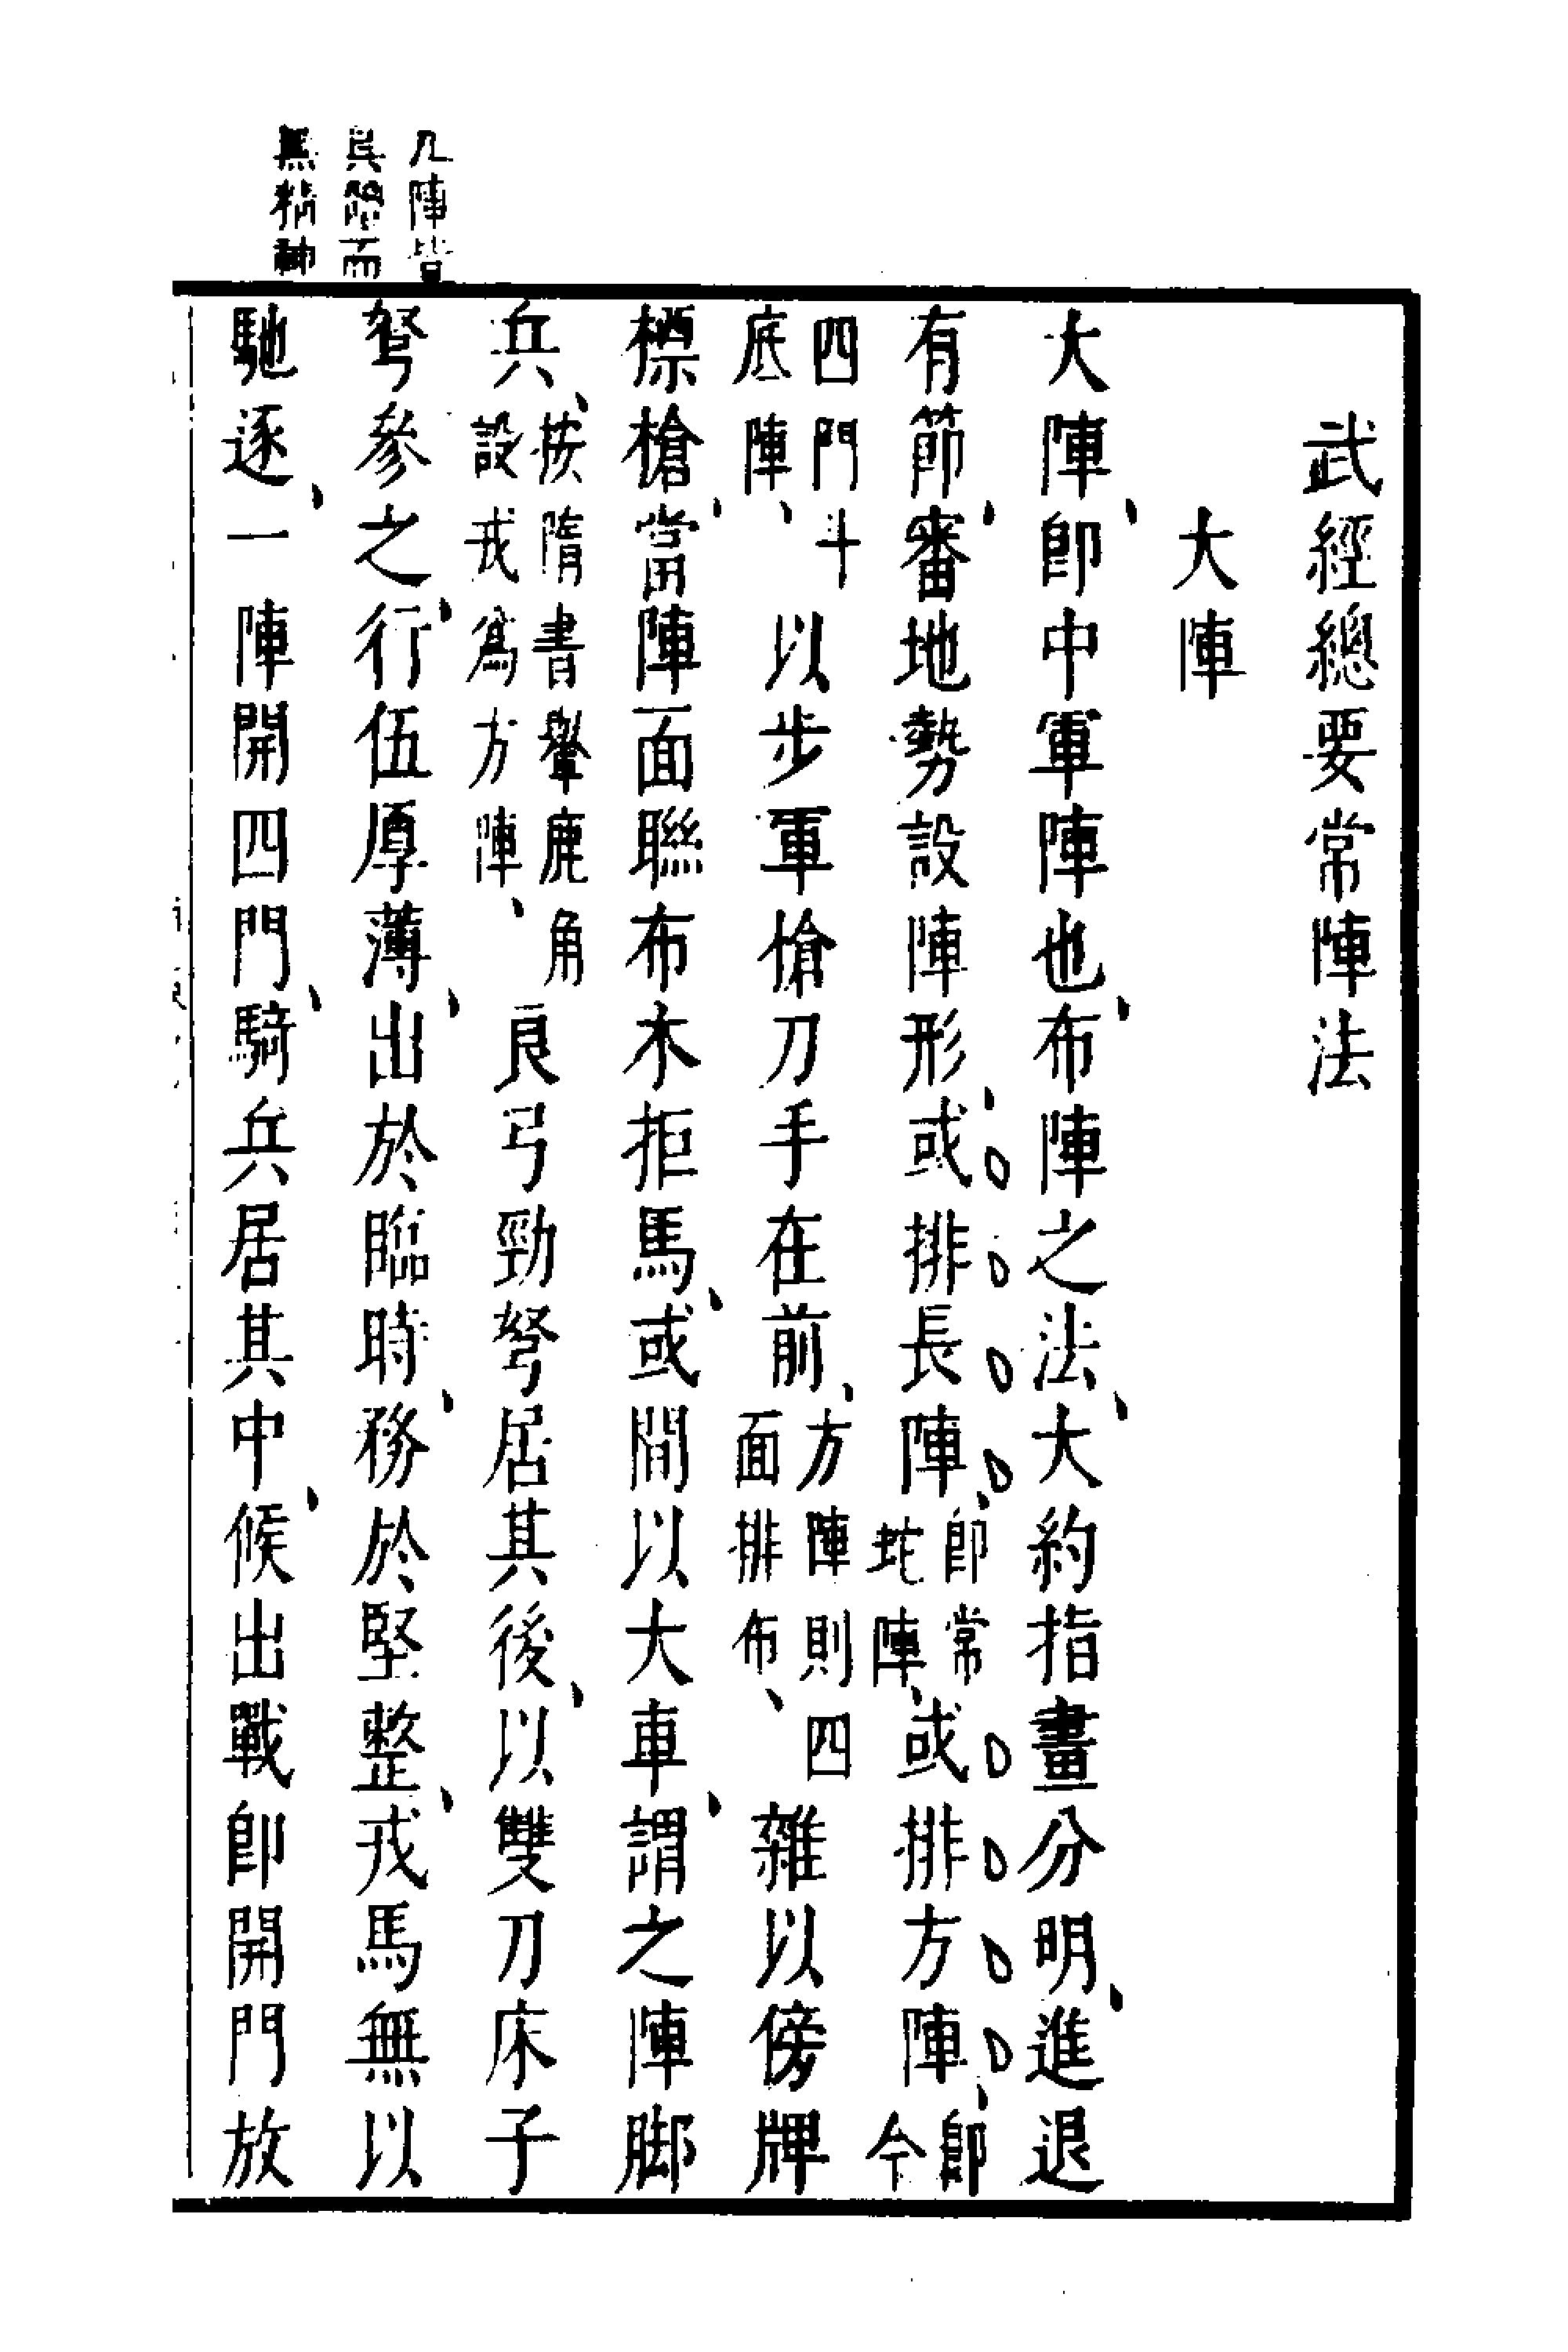 武經總要常陣法
大陣
大陣、即中軍陣也、布陣之法、大約指畫分明、進退
有節、審地勢設陣形、或排長陣、即常蛇陣、或排方陣、即今
四門斗底陣、以步軍槍刀手在前、方陣則四面排布、雜以傍牌
標槍、當陣面聯布木拒馬、或間以大車、謂之陣脚
兵、按隋書轝鹿角設戎爲方陣、良弓勁弩居其後、以雙刀床子
弩參之、行伍厚薄、出於臨時、務於堅整、戎馬無以
馳逐、一陣開四門、騎兵居其中、候出戰即開門放
凡陣皆
而
無精神